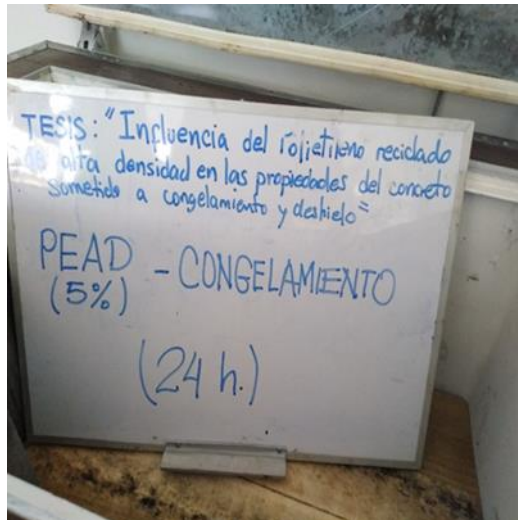 TESIS: "Influencia del Polietileno reciclado
de alta densidad en las propiedades del concreto
sometido a congelamiento y deshielo"
PEAD - CONGELAMIENTO
(5%)
(24 h.)